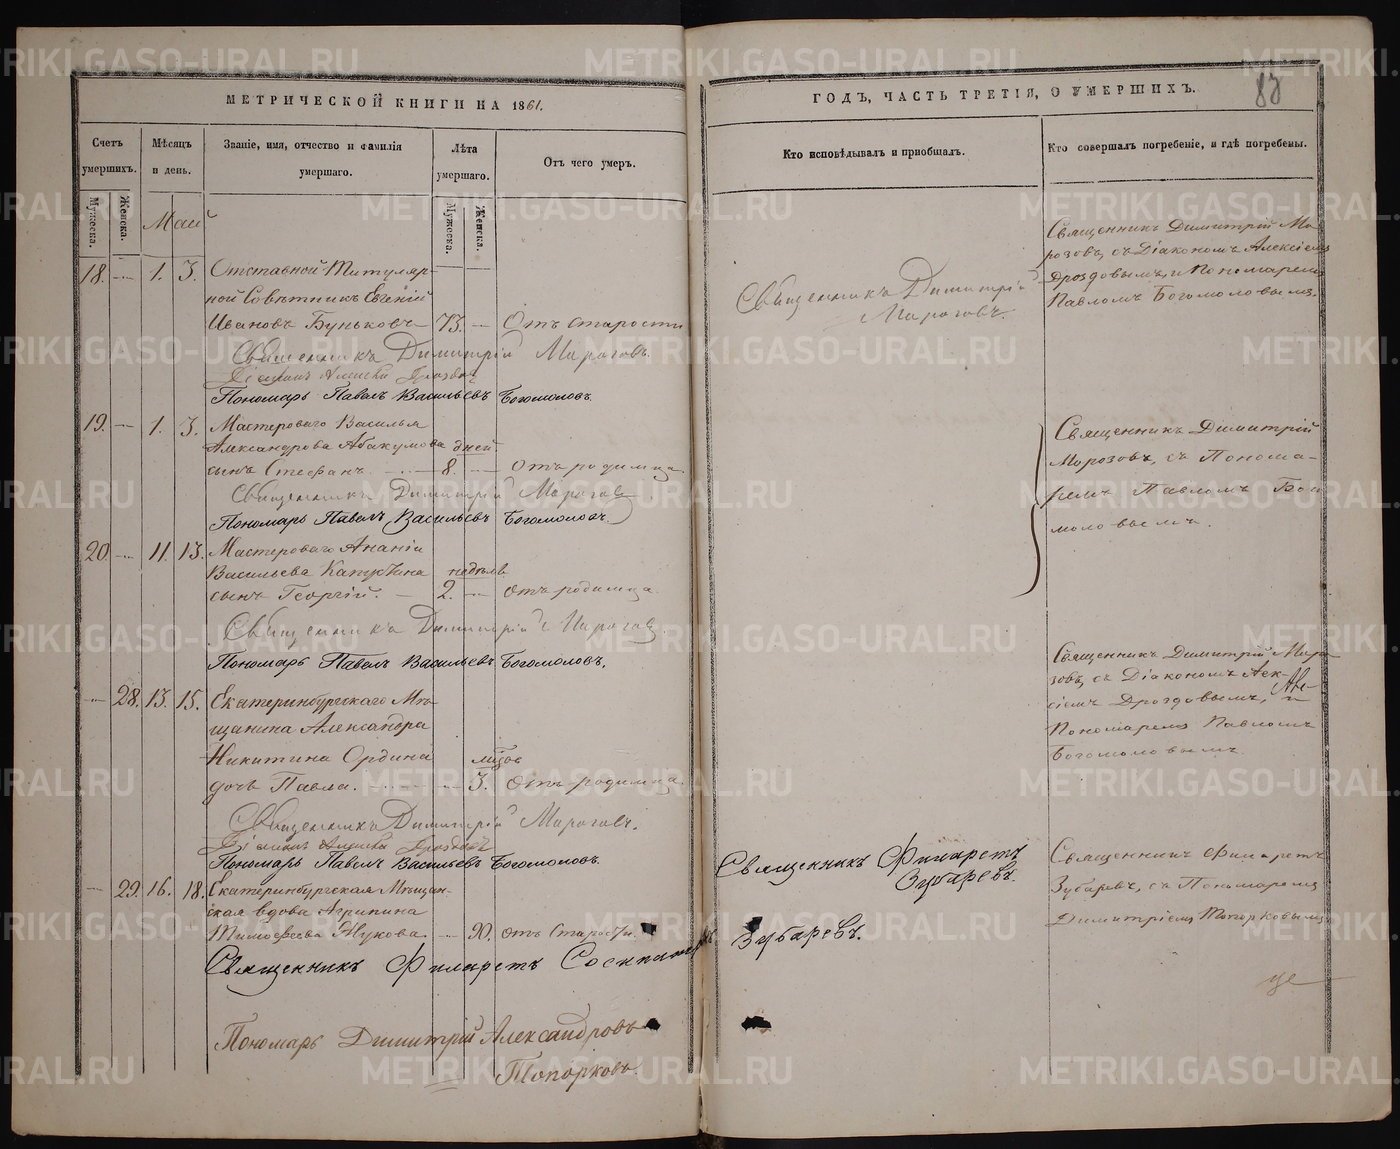 МЕТРИЧЕСКОЙ КНИГИ НА 1861.
Счетъ умершихъ.
Мужеска.
Женска.
Мѣсяцъ и день.
Званіе, имя, отчество и фамилія умершаго.
Лѣта умершаго.
Мужеска.
Женска.
Отъ чего умеръ.
Май
18. — 1. 3. Отставной Титуляр-
ной Совѣтникъ Евгеній
Ивановъ Буньковъ 73. — Отъ старости
Священникъ Димитрій Морозовъ.
Діаконъ Алексій Дроздовъ
Пономарь Павелъ Васильевъ Богомоловъ.
19. — 1. 3. Мастероваго Василья
Александрова Абакумова дней
сынъ Стефанъ. — 8. — отъ родимца.
Священникъ Димитрій Морозовъ
Пономарь Павелъ Васильевъ Богомоловъ.
20. — 11. 13. Мастероваго Ананіи
Васильева недѣль
сынъ Георгій. — 2. — отъ родимца.
Священникъ Димитрій Морозовъ.
Пономарь Павелъ Васильевъ Богомоловъ.
— 28. 13. 15. Екатеринбургскаго Мѣ-
щанина Александра
Никитина Ордина
дочь Павла. — 3. отъ родимца.
Священникъ Димитрій Морозовъ.
Діаконъ Алексій Дроздовъ
Пономарь Павелъ Васильевъ Богомоловъ.
— 29. 16. 18. Екатеринбургская Мѣщан-
ская вдова Агрипина
Тимофеева Жукова. — 90. отъ Старости.
Священникъ Филаретъ
Пономарь Димитрій Александровъ
Топорковъ.
ГОДЪ, ЧАСТЬ ТРЕТІЯ, О УМЕРШИХЪ.
Кто исповѣдывалъ и пріобщалъ.
Кто совершалъ погребеніе, и гдѣ погребены.
Священникъ Димитрій
Морозовъ.
Священникъ Димитрій Мо-
розовъ, съ Діакономъ Алексіемъ
Дроздовымъ, и Пономаремъ
Павломъ Богомоловымъ.
Священникъ Димитрій
Морозовъ, съ Понома-
ремъ Павломъ Бого-
моловымъ.
Священникъ Димитрій Моро-
зовъ, съ Діакономъ Алек-
сіемъ Дроздовымъ, и
Пономаремъ Павломъ
Богомоловымъ.
Священникъ Филаретъ
Зубаревъ.
Священникъ Филаретъ
Зубаревъ, съ Пономаремъ
Димитріемъ Топорковымъ
Зубаревъ.
METRIKI.GASO-URAL.RU